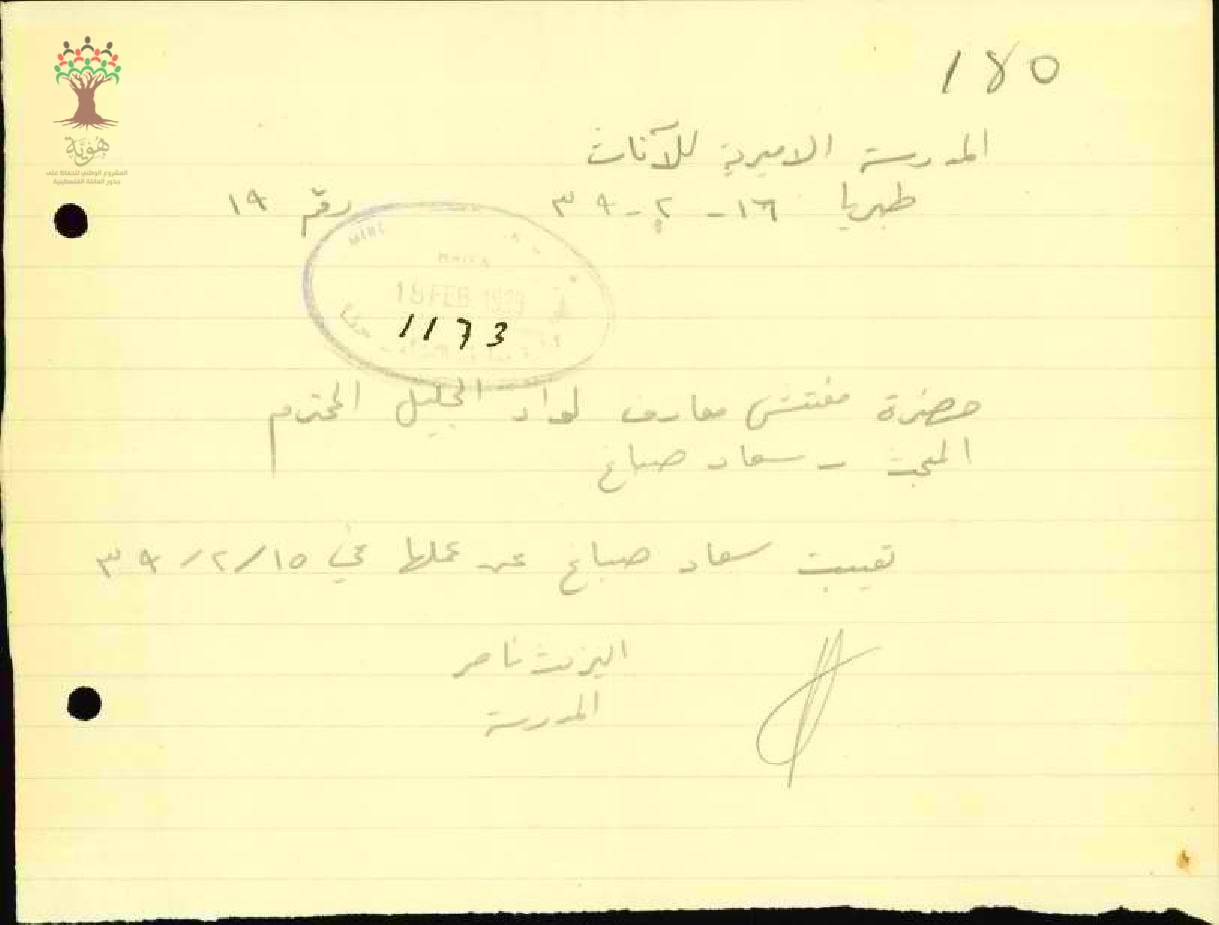 180
هوية
المشروع الوطني للحفاظ على
جذور العائلة الفلسطينية
المدرسة الاميرية للآناث
طبريا ١٦ - ٢ - ٣٩ رقم ١٩
HAIFA
18 FEB 1939
1173
حضرة مفتش معارف لواء الجليل المحترم
المبحث - سعاد صباغ
تغيبت سعاد صباغ عن عملها في ١٥/٢/٣٩
اليزبث ناصر
المدرسة